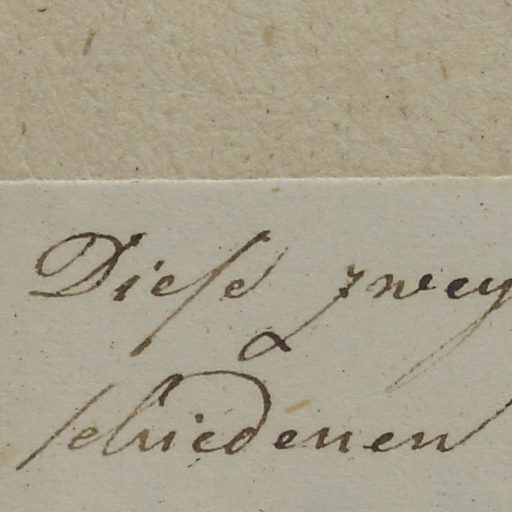 Diese zwey
schiedenen